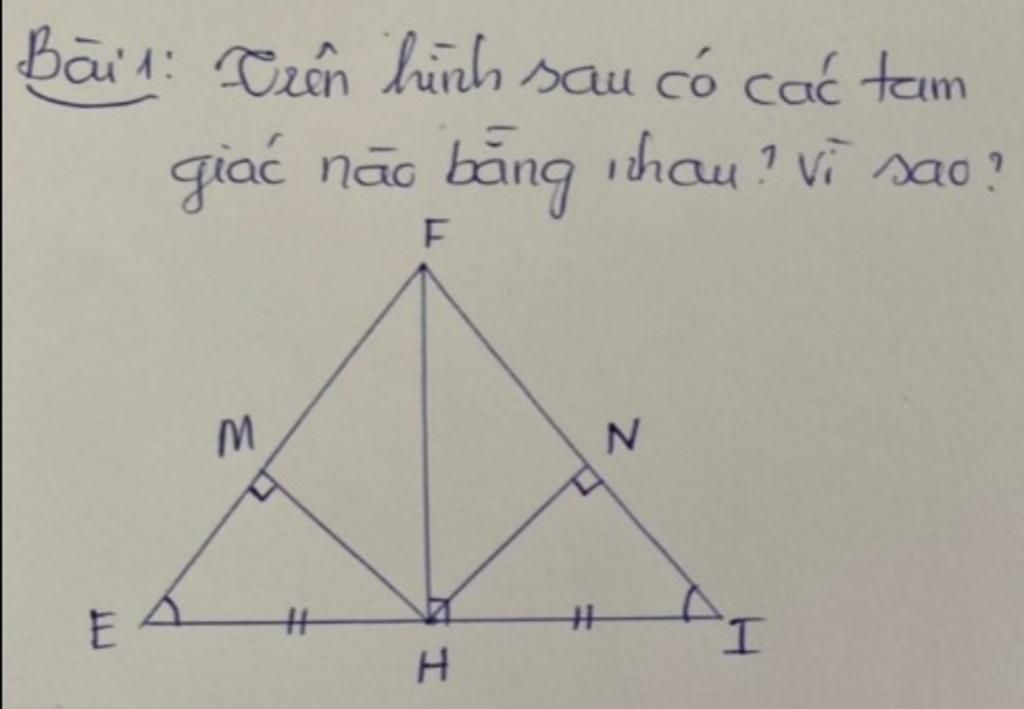 Bài 1: Trên hình sau có các tam
giác nào bằng nhau? Vì sao?
F
M
N
E
H
I